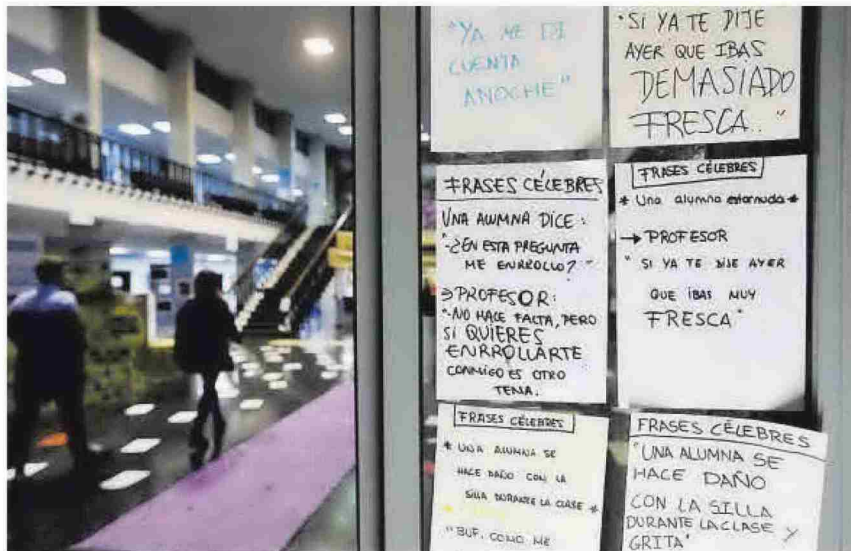 "YA ME DI
CUENTA
ANOCHE"
"SI YA TE DIJE
AYER QUE IBAS
DEMASIADO
FRESCA.."
FRASES CÉLEBRES
UNA ALUMNA DICE:
"-¿EN ESTA PREGUNTA
ME ENRROLLO?"
→ PROFESOR:
"-NO HACE FALTA, PERO
SI QUIERES
ENRROLLARTE
CONMIGO ES OTRO
TEMA.
FRASES CÉLEBRES
* Una alumna estornuda *
→ PROFESOR
" SI YA TE DIJE AYER
QUE IBAS MUY
FRESCA"
FRASES CÉLEBRES
* UNA ALUMNA SE
HACE DAÑO CON LA
SILLA DURANTE LA CLASE *
"BUF. COMO ME
FRASES CÉLEBRES
"UNA ALUMNA SE
HACE DAÑO
CON LA SILLA
DURANTE LA CLASE Y
GRITA"